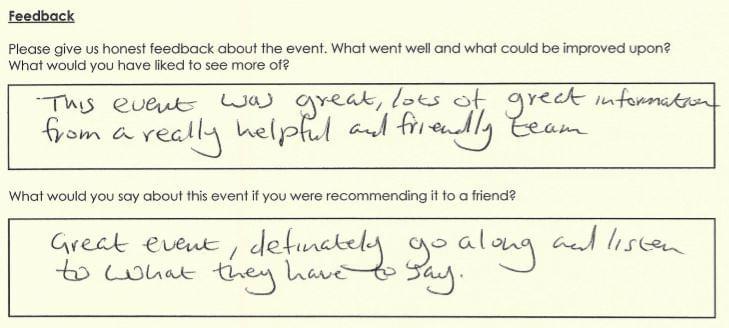 Feedback
Please give us honest feedback about the event. What went well and what could be improved upon?
What would you have liked to see more of?
This event was great, lots of great information
from a really helpful and friendly team
What would you say about this event if you were recommending it to a friend?
Great event, definately go along and listen
to what they have to say.